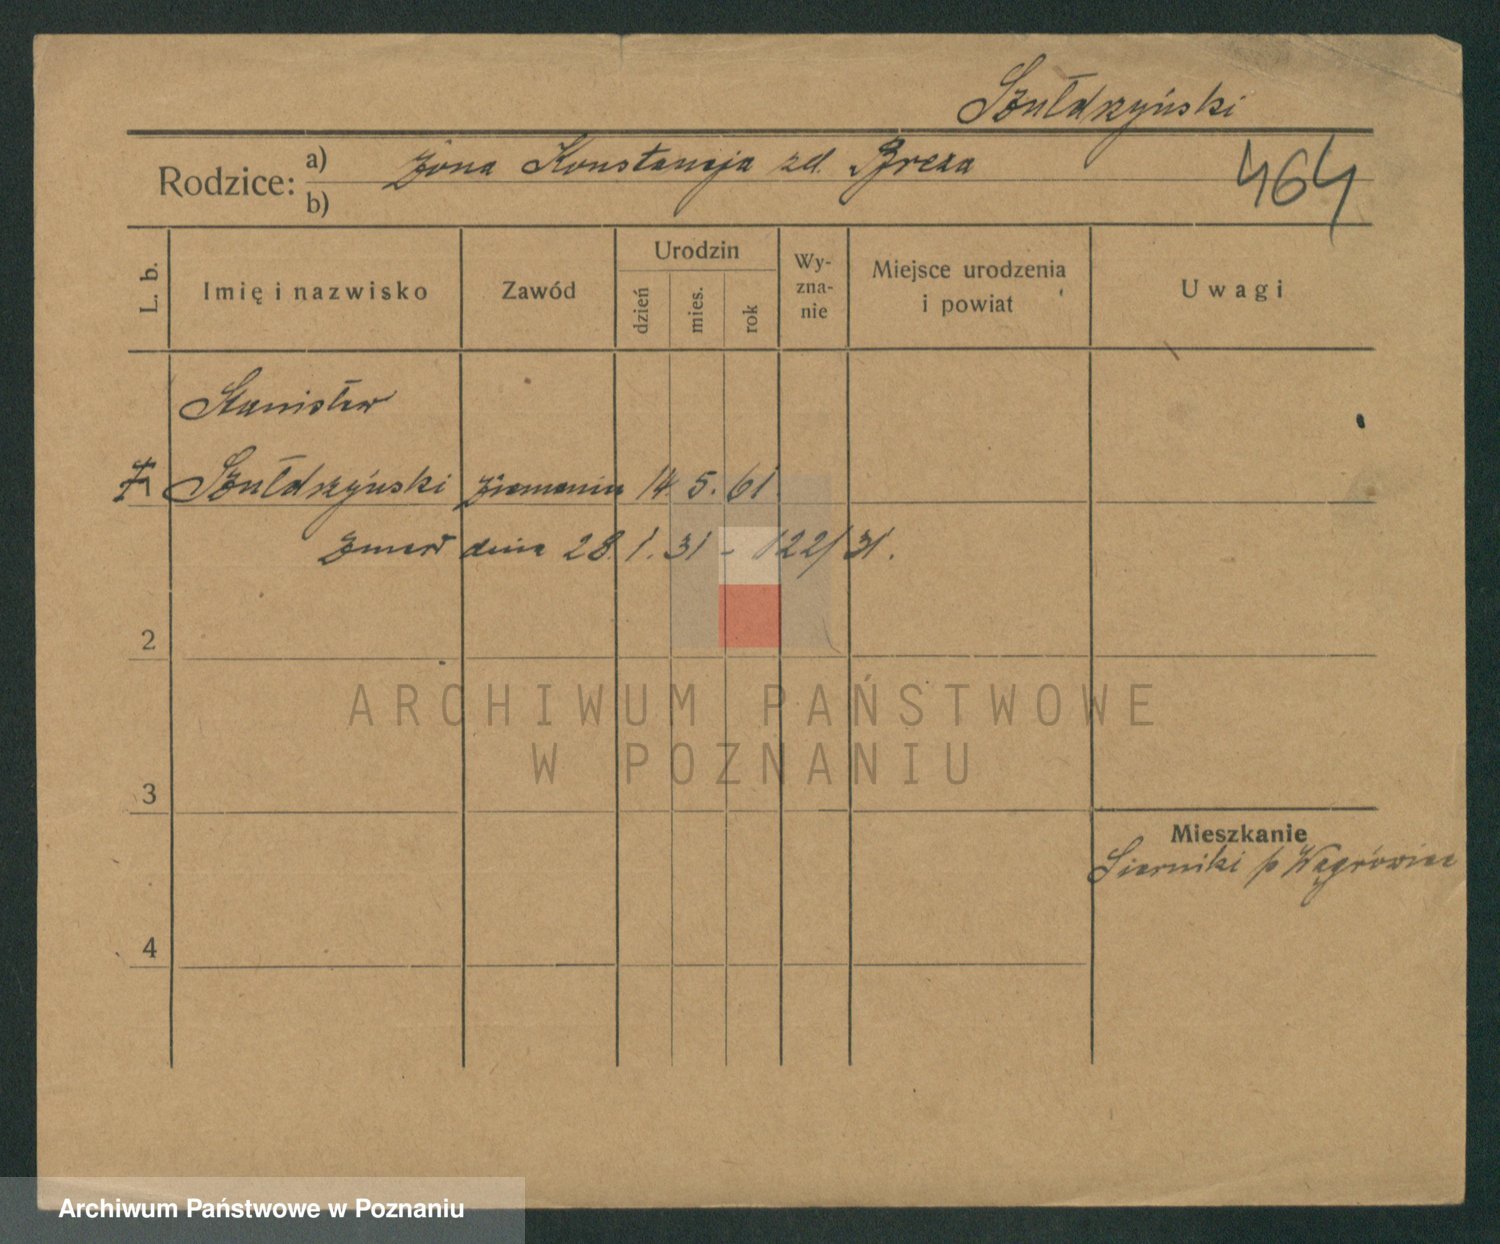 Szułdrzyński
Rodzice: a) żona Konstancja zd. Breza
b)
464
L. b. Imię i nazwisko Zawód Urodzin dzień mies. rok Wyznanie Miejsce urodzenia i powiat Uwagi
Stanisław
1 Szułdrzyński ziemianin 14. 5. 61
zmarł dnia 28. 1. 31 - 122/31.
2
3
Mieszkanie
Sierniki p Wągrowiec
4
ARCHIWUM PAŃSTWOWE
W POZNANIU
Archiwum Państwowe w Poznaniu